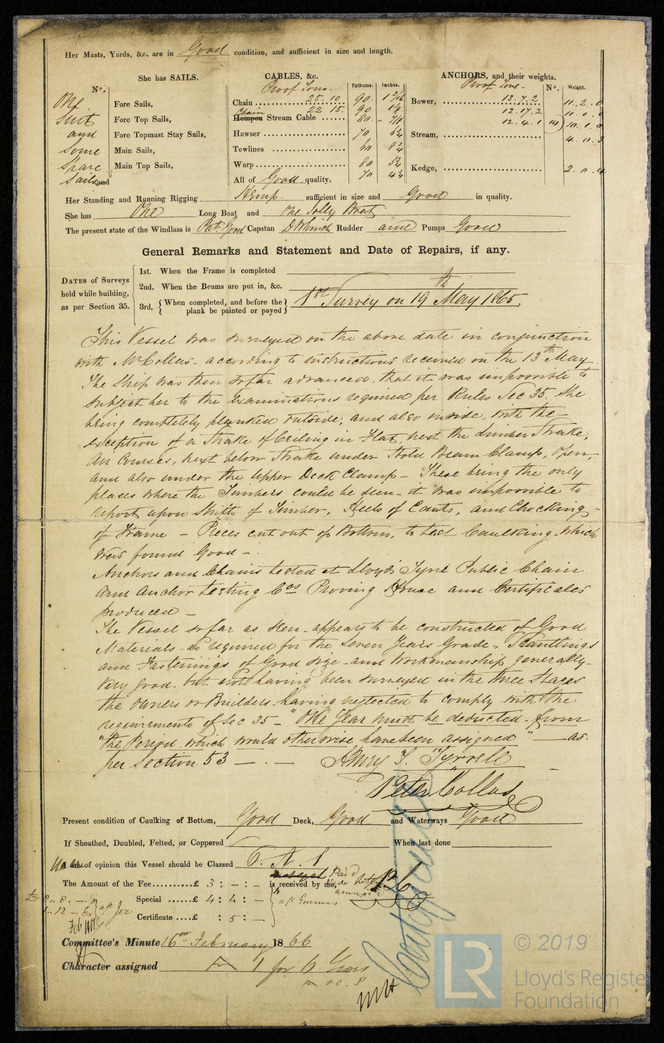 Her Masts, Yards, &c. are in Good condition, and sufficient in size and length.
She has SAILS.
CABLES, &c.
ANCHORS, and their weights.
N°.
Fathoms.
Inches.
Proof Tons.
Proof Tons.
N°.
Weight.
One Fore Sails,
Chain 25.10 90
Bower, 13.7.2 11.2.0
Suit Fore Top Sails,
Chain Hempen Stream Cable 22 15
12.17.2
and Fore Topmast Stay Sails,
Hawser 70
12.4.1 10.1.0
Some Main Sails,
Towlines
Stream,
Spare Main Top Sails,
Warp
Kedge,
Sails and
All of Good quality.
Her Standing and Running Rigging Hemp sufficient in size and Good in quality.
She has One Long Boat and One Jolly Boat
The present state of the Windlass is Pat. Good Capstan Rudder and Pumps Good
General Remarks and Statement and Date of Repairs, if any.
DATES of Surveys held while building, as per Section 35.
1st. When the Frame is completed
2nd. When the Beams are put in, &c.
3rd, { When completed, and before the plank be painted or payed } 1st Survey on 19 May 1865.
This Vessel was surveyed on the above date in conjunction
with Mr Collas. according to instructions received on the 13th May
The Ship was then so far advanced, that it was impossible to
subject her to the examinations required per Rules Sec 35. She
being completely planked outside, and also inside, with the
exception of a Strake of Ceiling in Flat, next the Limber Strake,
Air Courses, next below Strake under Hold Beam Clamp, open,
and also under the Upper Deck Clamp - These being the only
places where the Timbers could be seen - it was impossible to
report upon Shifts of Timber, Heels of Cants, and Chocking
of Frame - Pieces cut out of Bottom, to test Caulking which
were found Good -
Anchors and Chains tested at Lloyds Tyne Public Chain
and Anchor Testing Cos Proving House and Certificates
produced -
The Vessel so far as seen - appears to be constructed of Good
Materials - as required for the Seven Years Grade, Scantlings
and Fastenings of Good size and Workmanship generally
very good - but not having been surveyed in the three stages
the Owners or Builders having neglected to comply with the
requirements of Sec 35 - "One Year must be deducted from
"the Period which would otherwise have been assigned" - as
per Section 53 - . -
Henry T. Tyrrell
Peter Collas
Present condition of Caulking of Bottom, Good Deck, Good and Waterways Good
If Sheathed, Doubled, Felted, or Coppered
When last done
We are of opinion this Vessel should be Classed
The Amount of the Fee.........£ 3 : - : - is received by me, Paid
Special ......£ 4 : 4 : -
Certificate ...£ : 5 : -
Committee's Minute 16th February 1866
Character assigned A 1 for 6 Years
LR
© 2019
Lloyd's Register
Foundation